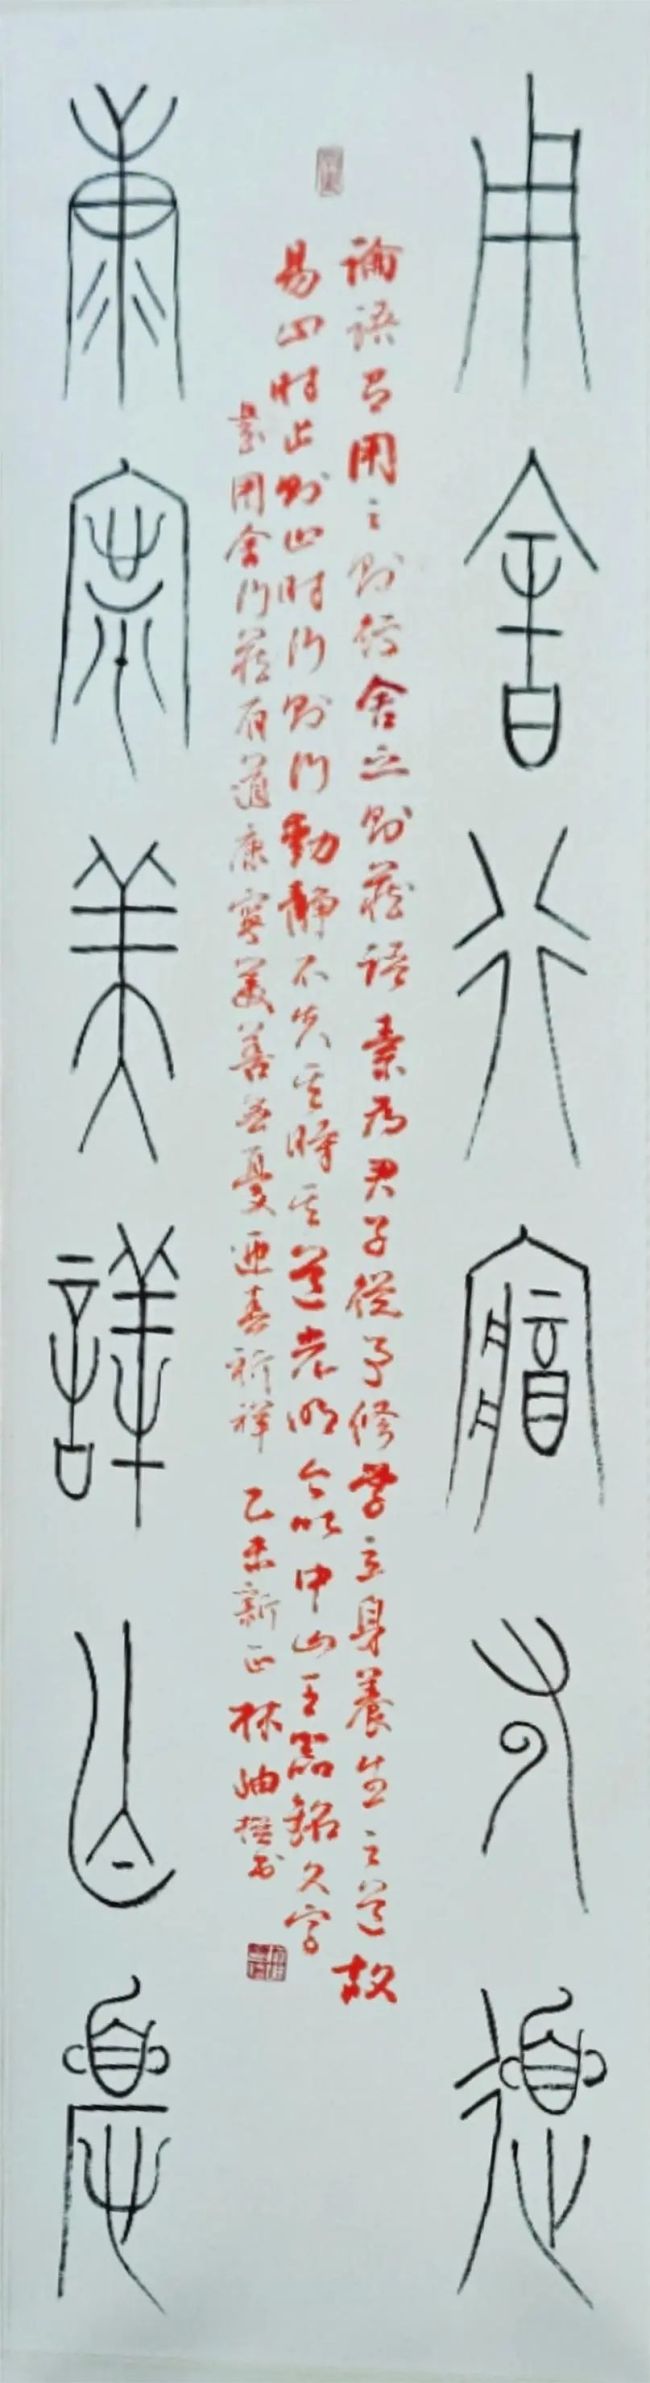 用舍行藏有道
論語曰用之則行舍之則藏語素為君子從事修學立身養生之道故
易曰時止則止時行則行動靜不失其時其道光明今以中山王器銘文字
用舍行藏有道康寧美善無憂迎喜祈祥 乙未新正林岫撰书
康寧美善亡憂